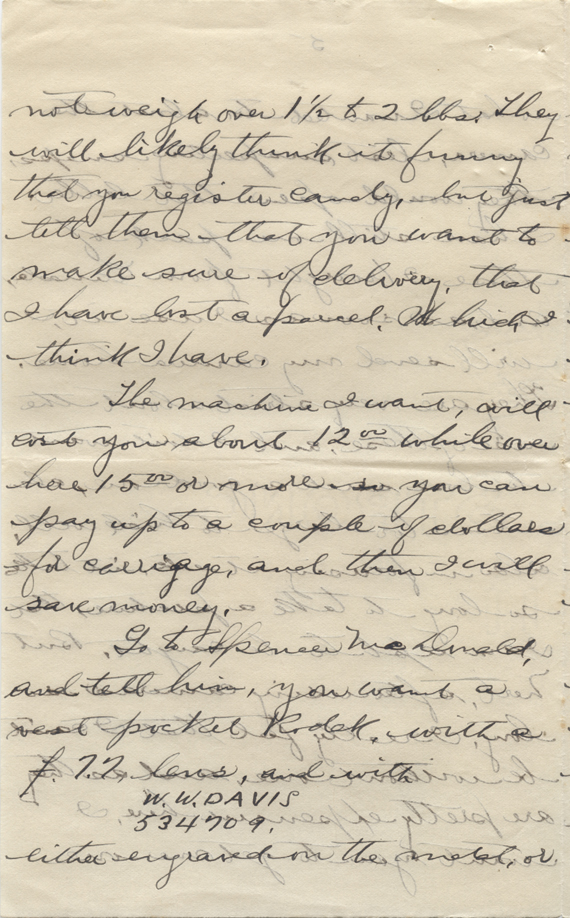 not weigh over 1½ to 2 lbs. They
will likely think it funny
that you register candy, but just
tell them that you want to
make sure of delivery, that
I have lost a parcel. Which I
think I have.
The machine I want, will
cost you about 12 00 while over
here 15 00 or more so you can
pay up to a couple of dollars
for carriage, and then I will
save money.
Go to Spencer McDonald,
and tell him, you want a
vest pocket Kodak, with a
f. 7.7. lens, and with
W.W. DAVIS
534709.
either engraved on the metal, or